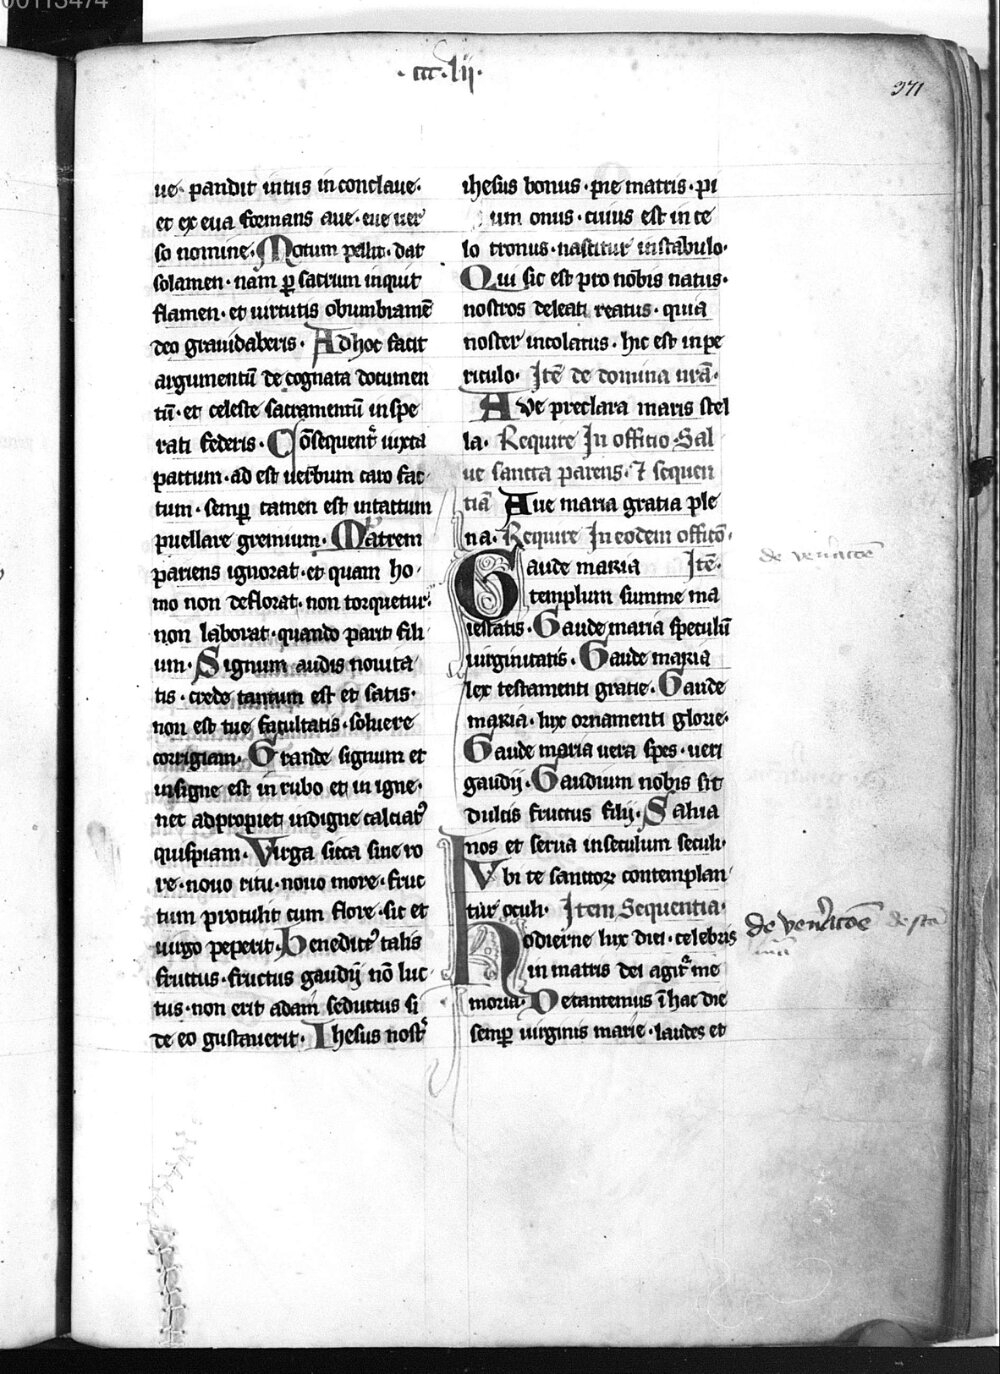 ·ccc·lij·
371
ue· pandit intus in conclaue·
et ex eua formans aue· eue uer
so nomine· Motum pellit· dat
solamen· nam ꝑ sacrum inquit
flamen· et uirtutis obumbramē
deo grauidaberis· Ad hoc facit
argumentū de cognata documen
tū· et celeste sacramentū inspe
rati federis· Cōsequentꝰ iuxta
pactum· ad est uerbum caro fac
tum· semꝑ tamen est intactum
puellare gremium· Matrem
pariens ignorat· et quam ho
mo non deflorat· non torquetur·
non laborat· quando parit fili
um· Signum audis nouita
tis· crede tantum est et satis·
non est tue facultatis· soluere
corrigiam· Grande signum et
insigne est in rubo et in igne·
nec appropiet indigne calciatꝰ
quispiam· Virga sicca sine ro
re· nouo ritu· nouo more· fruc
tum protulit cum flore· sic et
uirgo peperit· Benedictꝰ talis
fructus· fructus gaudij nō luc
tus· non erit adam seductus si
de eo gustauerit· Ihesus nostꝰ
ihesus bonus· pie matris· pi
um onus· cuius est in ce
lo tronus· nascitur in stabulo·
Qui sic est pro nobis natus·
nostros deleat reatus· quia
noster incolatus· hic est in pe
riculo· Itē de domina nrā·
Ave preclara maris stel
la· Require In officio Sal
ue sancta parens· ⁊ sequen
tiā Aue maria gratia ple
na· Require In eodem officō·
Gaude maria Itē·
templum summe ma
iestatis· Gaude maria speculū
uirginitatis· Gaude maria
lex testamenti gratie· Gaude
maria· lux ornamenti glorie·
Gaude maria uera spes· ueri
gaudij· Gaudium nobis sit
dulcis fructus filij· Salua
nos et serua in seculum seculi·
Vbi te sanctorꝫ contemplan
tur oculi· Item Sequentia·
Hodierne lux diei· celebris
in matris dei agitꝰ me
moria· Decantemus ī hac die
semꝑ uirginis marie· laudes et